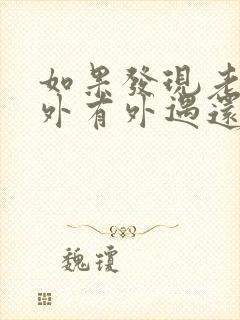 如果發現老
外有外遇還
魏瓊